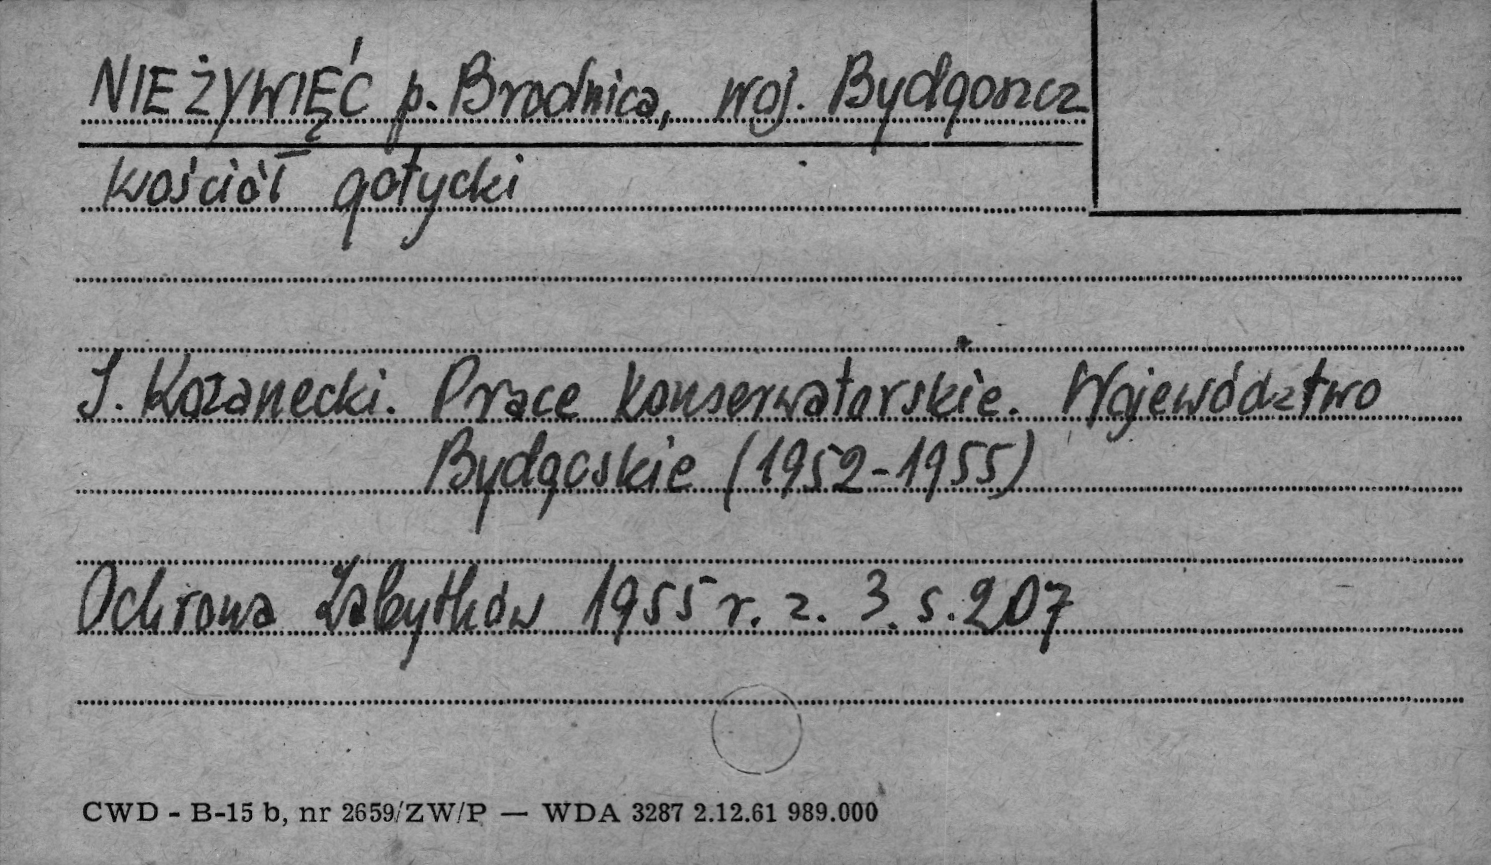 NIEŻYWIĘĆ p. Brodnica, woj. Bydgoszcz
kościół gotycki
J. Kozanecki. Prace konserwatorskie. Województwo
Bydgoskie (1952-1955)
Ochrona Zabytków 1955 r. z. 3. s. 207
CWD - B-15 b, nr 2659/ZW/P — WDA 3287 2.12.61 989.000